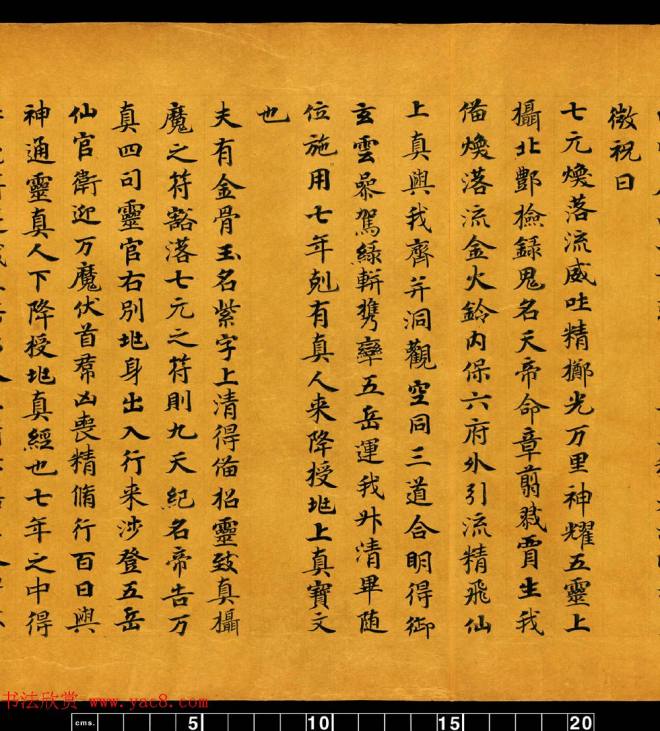 微祝曰
七元煥落流威吐精擲光万里神耀五靈上
攝北酆撿錄鬼名天帝命章翦戮賈生我
俻煥落流金火鈴內保六府外引流精飛仙
上真與我齊并洞觀空同三道合明得御
玄雲駕綠軿攜五岳運我升清畢随
位施用七年剋有真人来降授地上真寳文
也
夫有金骨玉名紫字上清得俻招靈致真攝
魔之苻豁落七元之苻則九天紀名帝告万
真四司靈官右別地身出入行来涉登五岳
仙官衛迎万魔伏首羣凶喪精脩行百日與
神通靈真人下降授地真經也七年之中得
书法欣赏 www.yac8.com
cms. 5 10 15 20